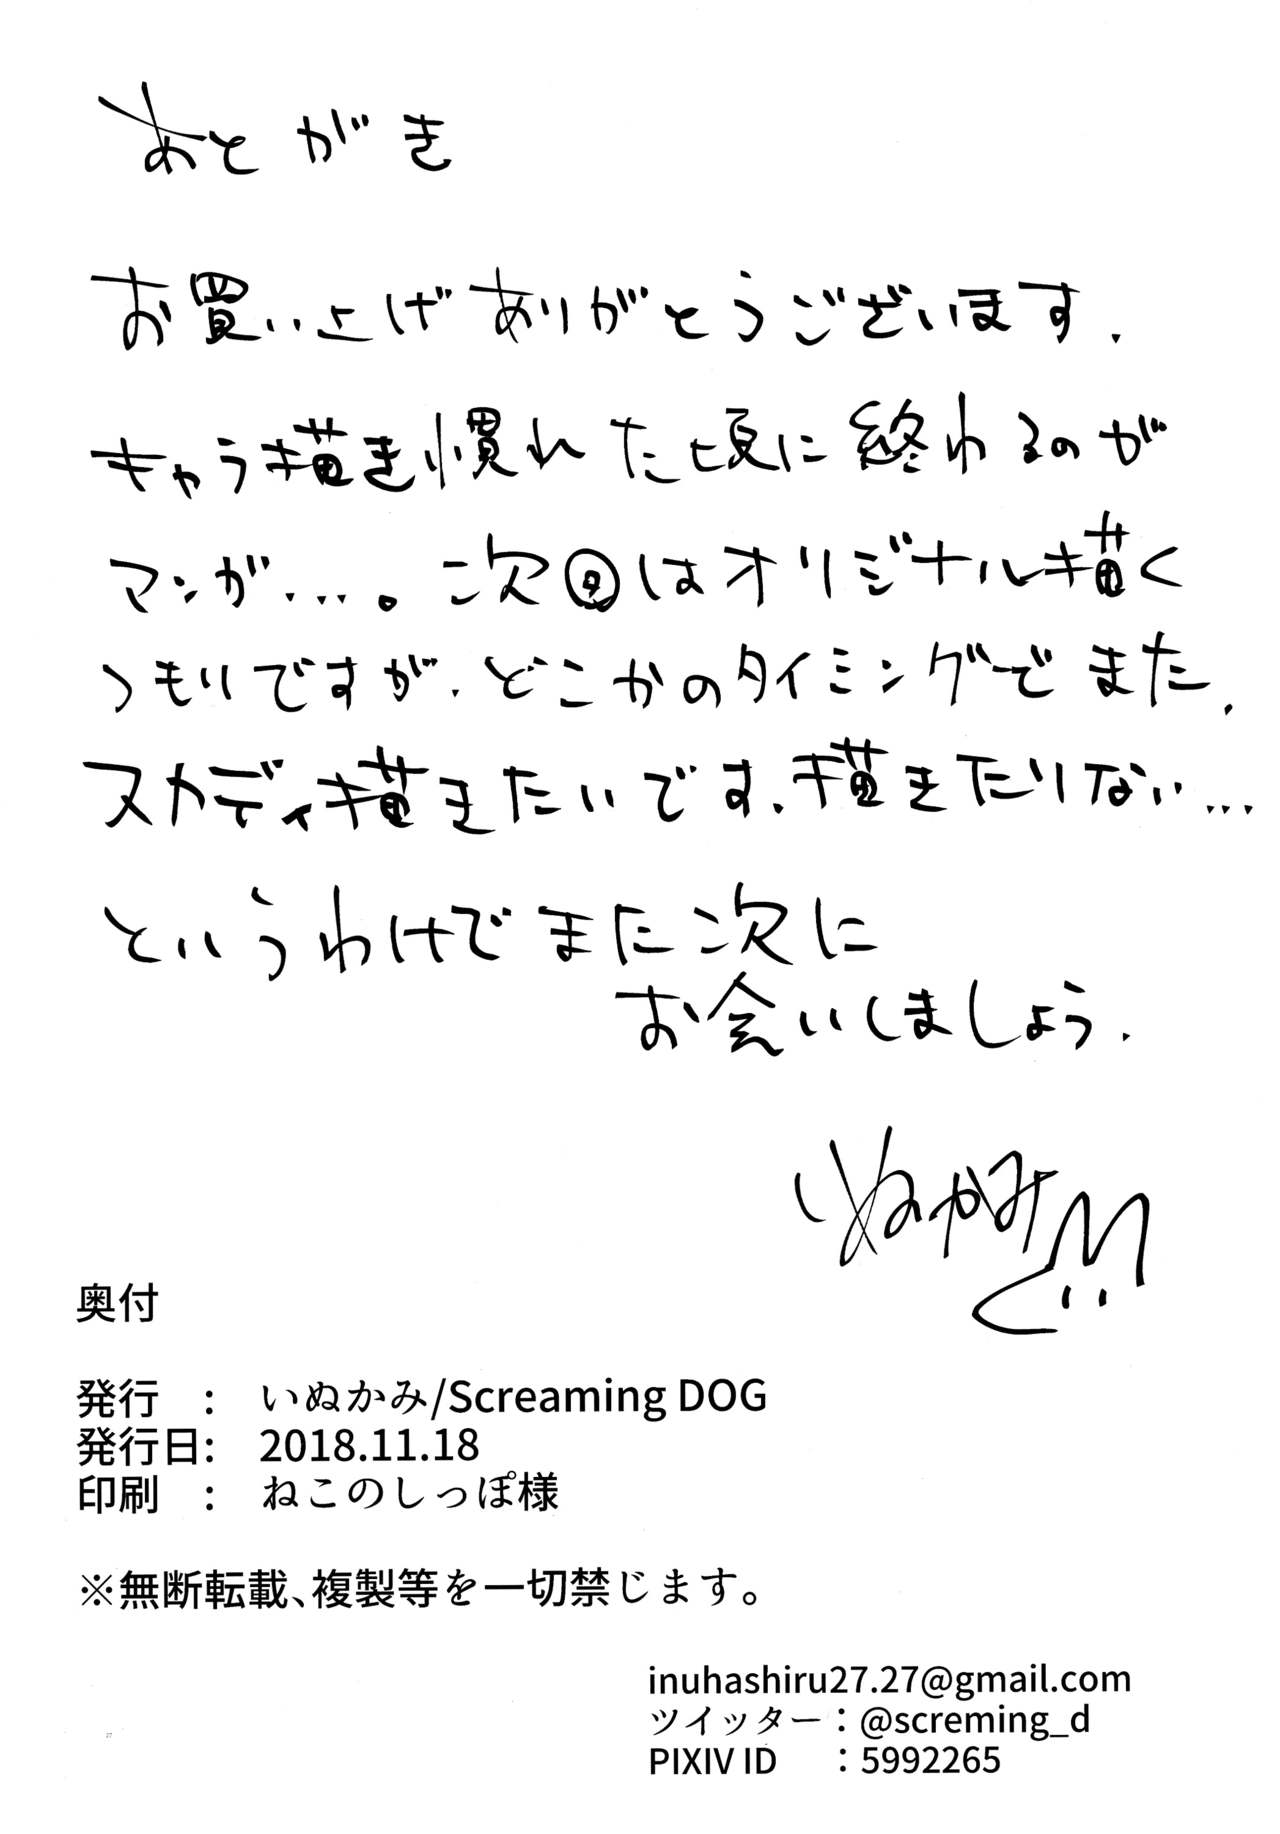 あとがき
お買い上げありがとうございます.
キャラ描き慣れた頃に終わるのが
マンガ…。次回はオリジナル描く
つもりですが、どこかのタイミングでまた、
スカディ描きたいです、描きたりない…
というわけでまた次に
お会いしましょう.
いぬかみ
奥付
発行　:　いぬかみ/Screaming DOG
発行日:　2018.11.18
印刷　:　ねこのしっぽ様
※無断転載、複製等を一切禁じます。
inuhashiru27.27@gmail.com
ツイッター：@screming_d
PIXIV ID　：5992265
27